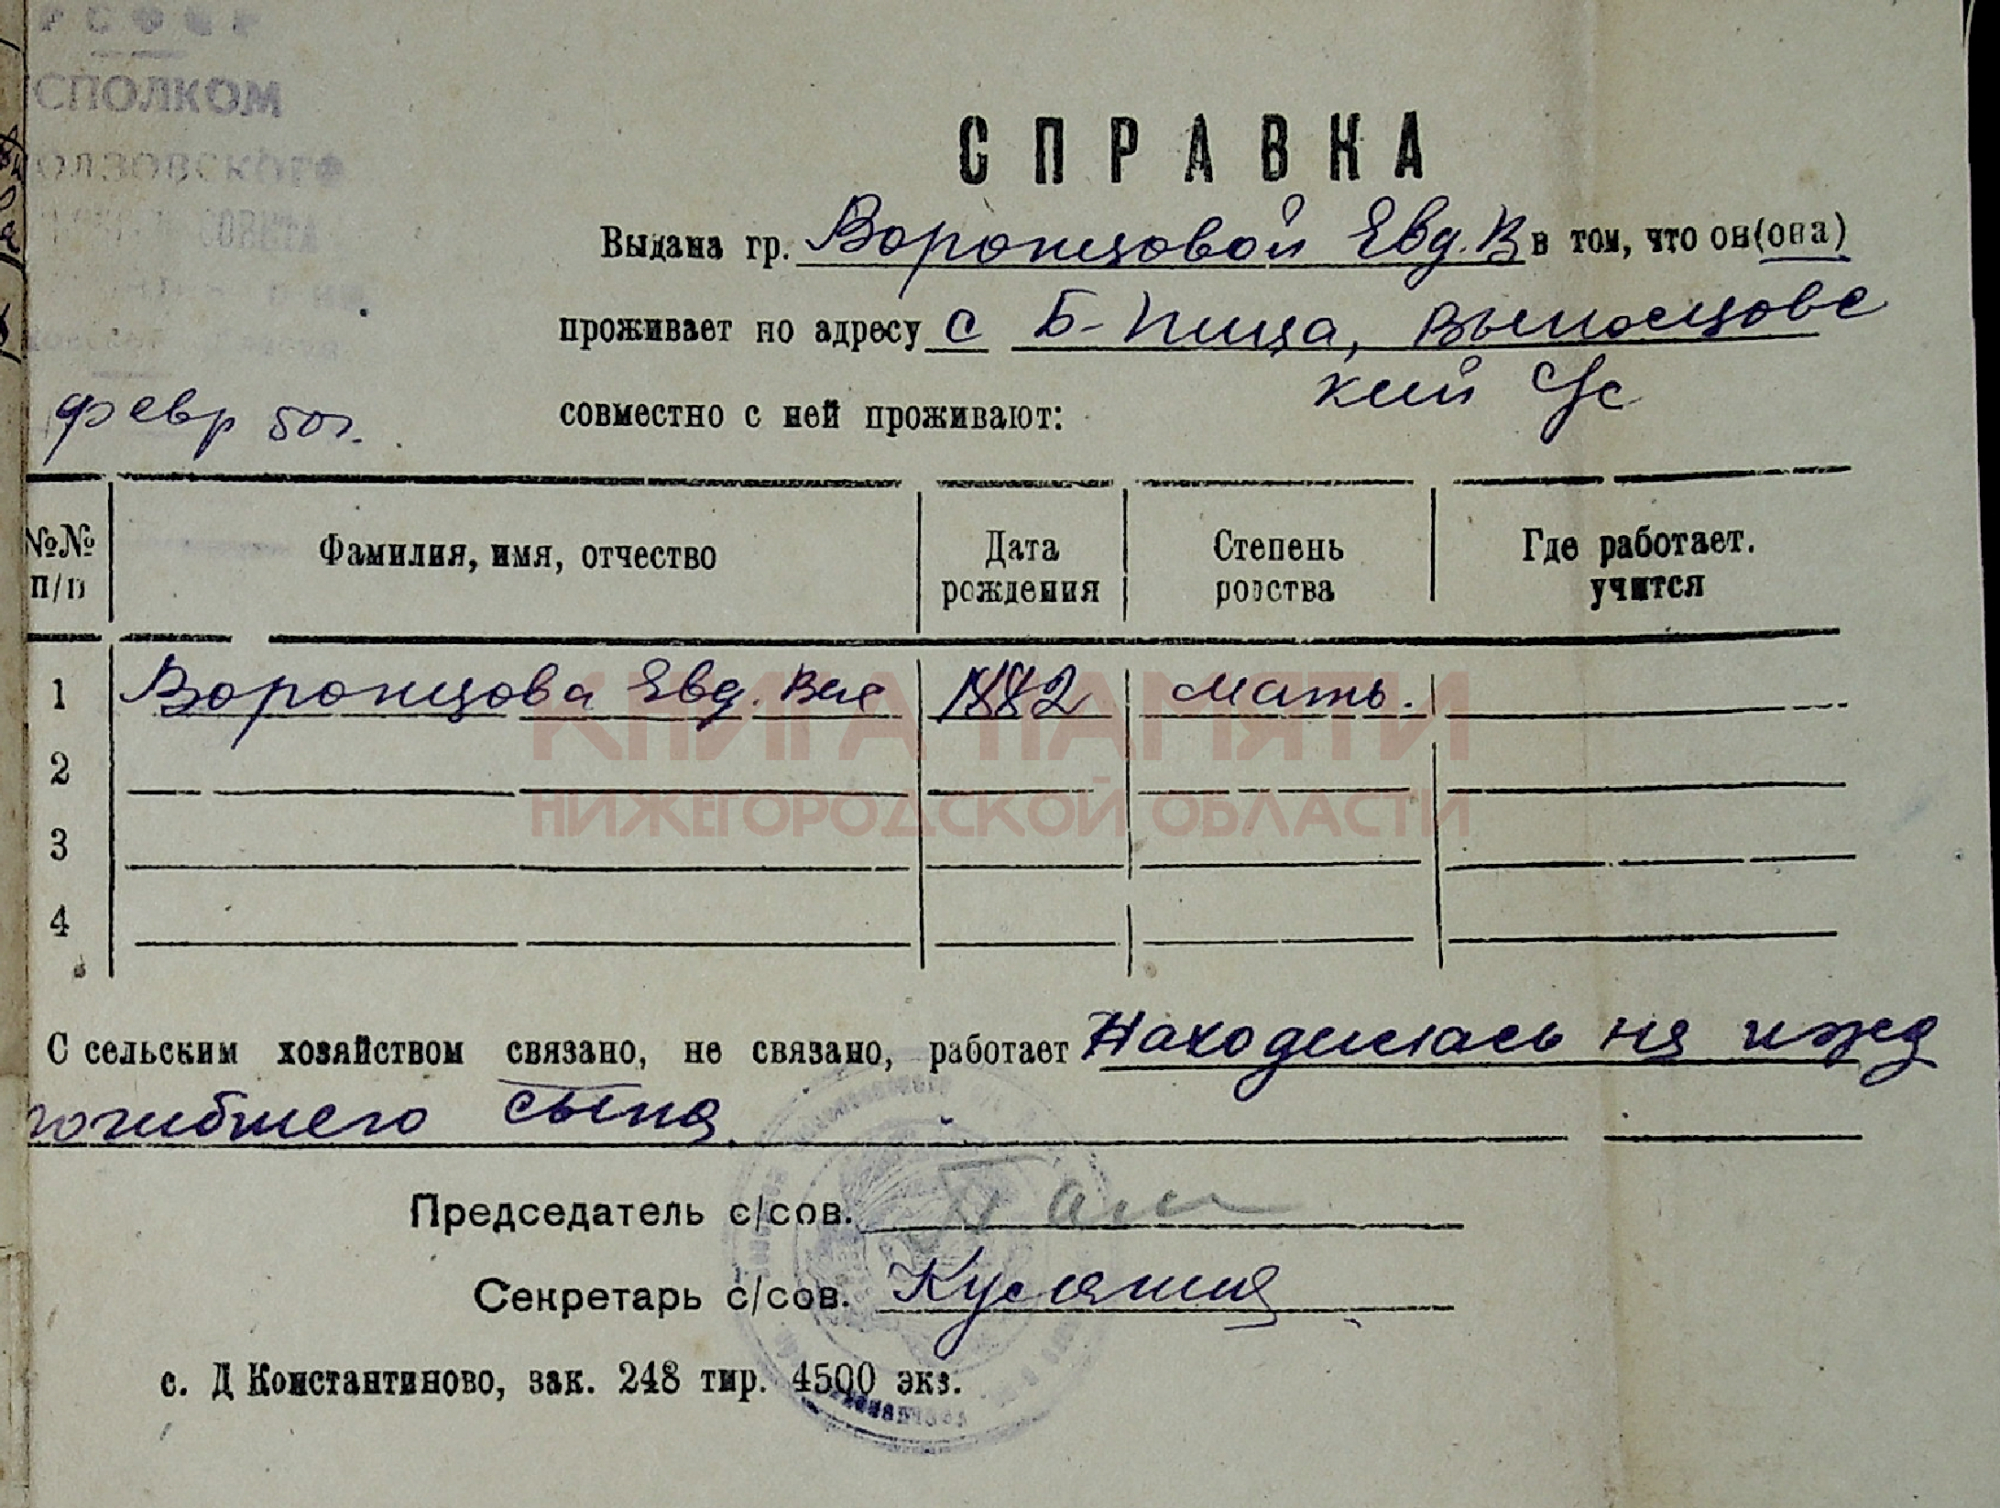 РСФСР
СПОЛКОМ
ОЛЗОВСКОГО
СОВЕТА
февр 50г.
СПРАВКА
Выдана гр. Воронцовой Евд. В в том, что он(она)
проживает по адресу с Б-Пица,
кий с/с
совместно с ней проживают:
№№ п/п Фамилия, имя, отчество Дата рождения Степень родства Где работает. учится
1 Воронцова Евд. Вас 1882 мать.
2
3
4
КНИГА ПАМЯТИ
НИЖЕГОРОДСКОЙ ОБЛАСТИ
С сельским хозяйством связано, не связано, работает Находилась на ижд
погибшего сына.
Председатель с/сов.
Секретарь с/сов.
с. Д Константиново, зак. 248 тир. 4500 экз.